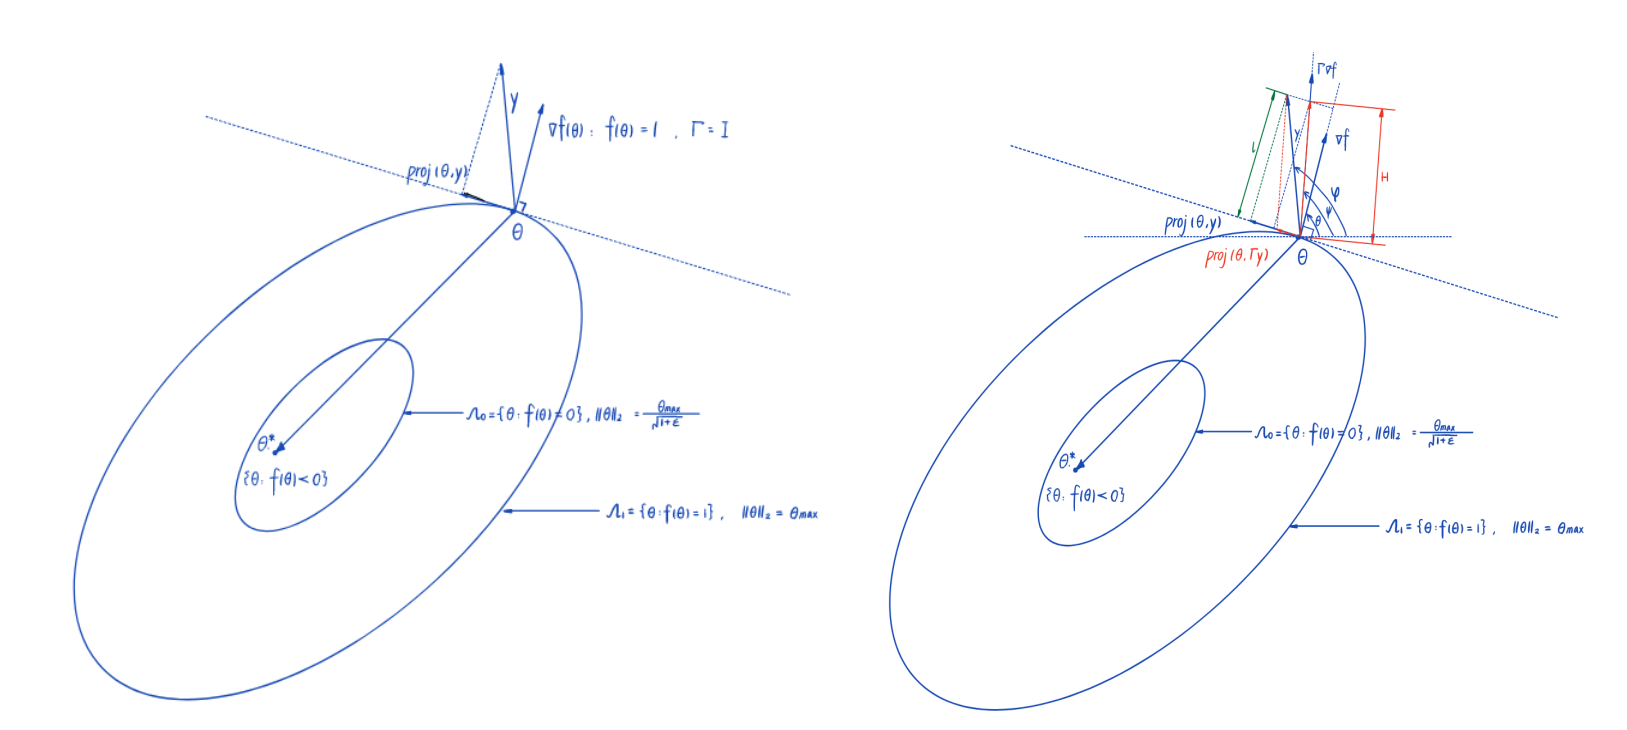 y
∇f(θ) : f(θ) = 1 , Γ = I
proj(θ,y)
θ
Λ₀ = {θ : f(θ) = 0}, ‖θ‖₂ = θmax/√(1+ε)
θ*
{θ : f(θ) < 0}
Λ₁ = {θ : f(θ) = 1}, ‖θ‖₂ = θmax
Γ∇f
y
∇f
l
H
φ
ψ
θ
proj(θ,y)
proj(θ,Γy)
θ
Λ₀ = {θ : f(θ) = 0}, ‖θ‖₂ = θmax/√(1+ε)
θ*
{θ : f(θ) < 0}
Λ₁ = {θ : f(θ) = 1}, ‖θ‖₂ = θmax